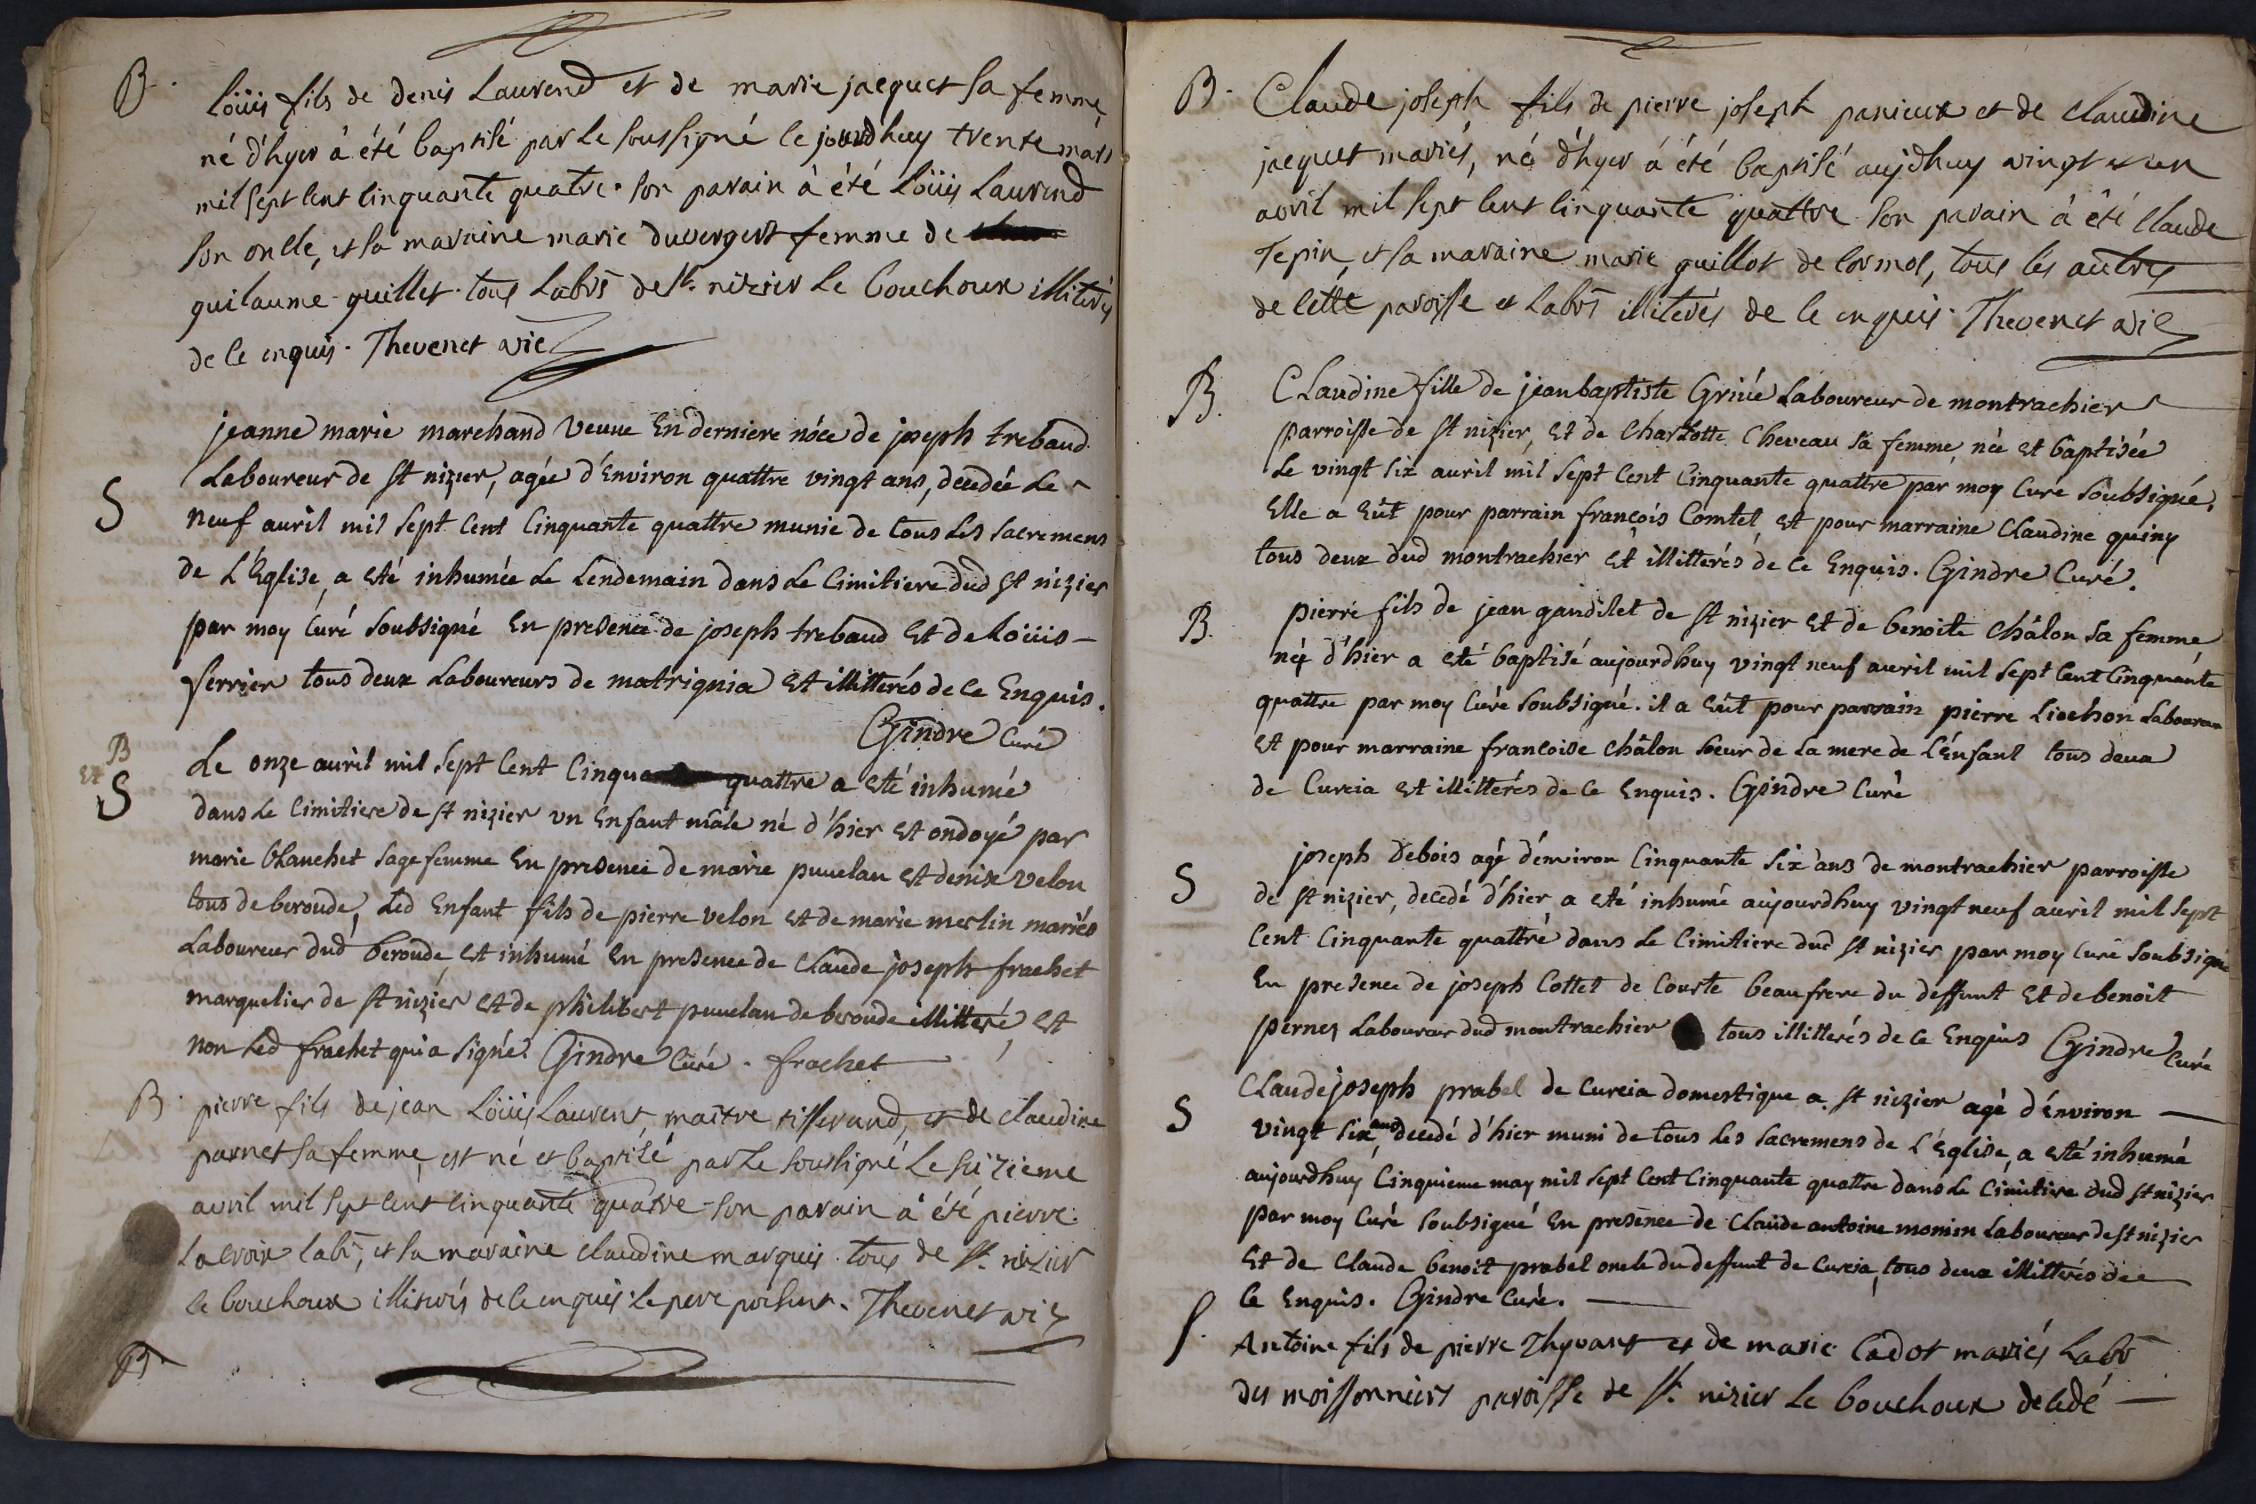 B.
Loüis fils de denis Laurend et de marie jacquet sa femme
né d'hyer à été baptisé par le soussigné ce jourdhuy trente mars
mil sept cent cinquante quatre. son parain à été Loüis Laurend
son oncle, et sa maraine marie duvergert femme de
guilaume guillet. tous Labrs de st. nizier Le bouchoux illiterés
de ce enquis. Thevenet vic
S
jeanne marie marchand veuve En derniere nôce de joseph trebaud
Laboureur de st nizier, agée d'Environ quattre vingt ans, decedée Le
neuf avril mil sept Cent Cinquante quattre munie de tous Les sacremens
de L'Eglise, a eté inhumée Le Lendemain dans Le Cimitiere dud St nizier
par moy Curé soubsigné En presence de joseph trebaud Et de Loüis
ferrier tous deux Laboureurs de matrignia Et illitterés de ce Enquis.
Gindre Curé
B
Et
S
Le onze avril mil sept Cent Cinqua quattre a eté inhumé
dans Le Cimitiere de st nizier un Enfant mâle né d'hier Et ondoyé par
marie blanchet sage femme En presence de marie puvelan Et denix velon
tous de beroude, Led Enfant fils de pierre velon Et de marie merlin mariés
Laboureur dud beroude, Et inhumé En presence de Claude joseph frachet
marquelier de St nizier Et de philibert puvelan de beroude illitteré, Et
non Led frachet qui a signé. Gindre Curé. frachet
B.
pierre fils de jean Loüis Laurent, maitre tisserand, et de claudine
parnet sa femme, est né et baptisé par Le soussigné Le seizieme
avril mil sept cent cinquante quatre. son parain à été pierre
Lacroix labr, et sa maraine claudine marquis. tous de st. nizier
le bouchoux illiterés de ce enquis. le pere présent. Thevenet vic
B.
B.
Claude joseph fils de pierre joseph panieux et de claudine
jacquet mariés, né d'hyer à été baptisé aujdhuy vingt et un
avril mil sept cent cinquante quattre. son parain à été claude
Tepin, et sa maraine marie guillot de Cormoz, tous les autres
de cette paroisse et labrs illiterés de ce enquis. Thevenet vic
B.
CLaudine fille de jean baptiste Grivé Laboureur de montrachier
parroisse de St nizier, Et de Charlotte Cheveau sa femme, née et baptisée
Le vingt six avril mil sept Cent Cinquante quattre par moy Curé soubsigné.
Elle a Eüt pour parrain françois Comtet Et pour marraine Claudine quiny
tous deux dud montrachier Et illitterés de Ce Enquis. Gindre Curé.
B.
pierre fils de jean gandilet de St nizier Et de benoite châlon sa femme,
né d'hier a eté baptisé aujourdhuy vingt neuf avril mil sept Cent Cinquante
quattre par moy Curé soubsigné. il a Eüt pour parrain pierre Liochon Laboureur
Et pour marraine francoise châlon soeur de La mere de L'Enfant tous deux
de Curcia Et illitterés de Ce Enquis. Gindre Curé
S
joseph debois agé d'environ Cinquante six ans de montrachier parroisse
de st nizier, decedé d'hier a eté inhumé aujourdhuy vingt neuf avril mil sept
Cent Cinquante quattre dans Le Cimitiere dud St nizier par moy Curé soubsigné
En presence de joseph Cottet de Courte beaufrere du deffunt Et de benoit
pernez Laboureur dud montrachier tous illitterés de Ce Enquis Gindre Curé
S
CLaude joseph prabel de Curcia domestique a St nizier agé d'Environ
vingt six ans decedé d'hier muni de tous Les sacremens de L'Eglise, a eté inhumé
aujourdhuy Cinquieme may mil sept Cent Cinquante quattre dans Le Cimitiere dud St nizier
par moy Curé soubsigné En presence de Claude antoine monin Laboureur de st nizier
Et de Claude benoit prabel oncle du deffunt de Curcia, tous deux illitterés de
Ce Enquis. Gindre Curé.
S.
Antoine fils de pierre Thyvant et de marie Cadot mariés labrs
des moissonniers paroisse de st. nizier le bouchoux decedé